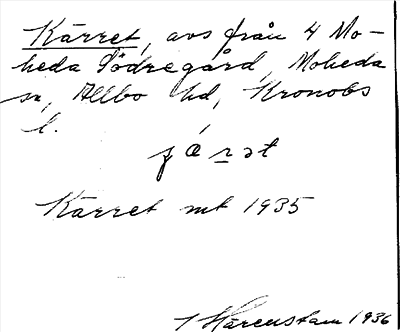 Kärret, avs från 4 Mo-
heda Södregård, Moheda
sn, Allbo hd, Kronobs
l.
Kärret mt 1935
Härenstam 1936